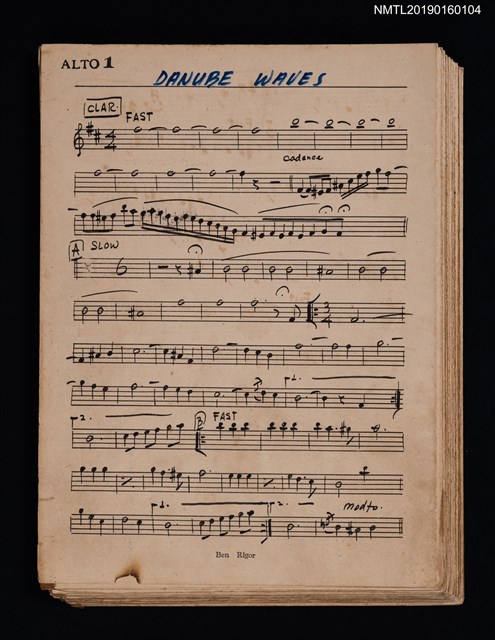 NMTL20190160104
ALTO 1
DANUBE WAVES
CLAR.
FAST
4
4
cadence
A SLOW
6
3
4
P1.
P2.
B FAST
P1.
P2.
modto.
Ben Rigor